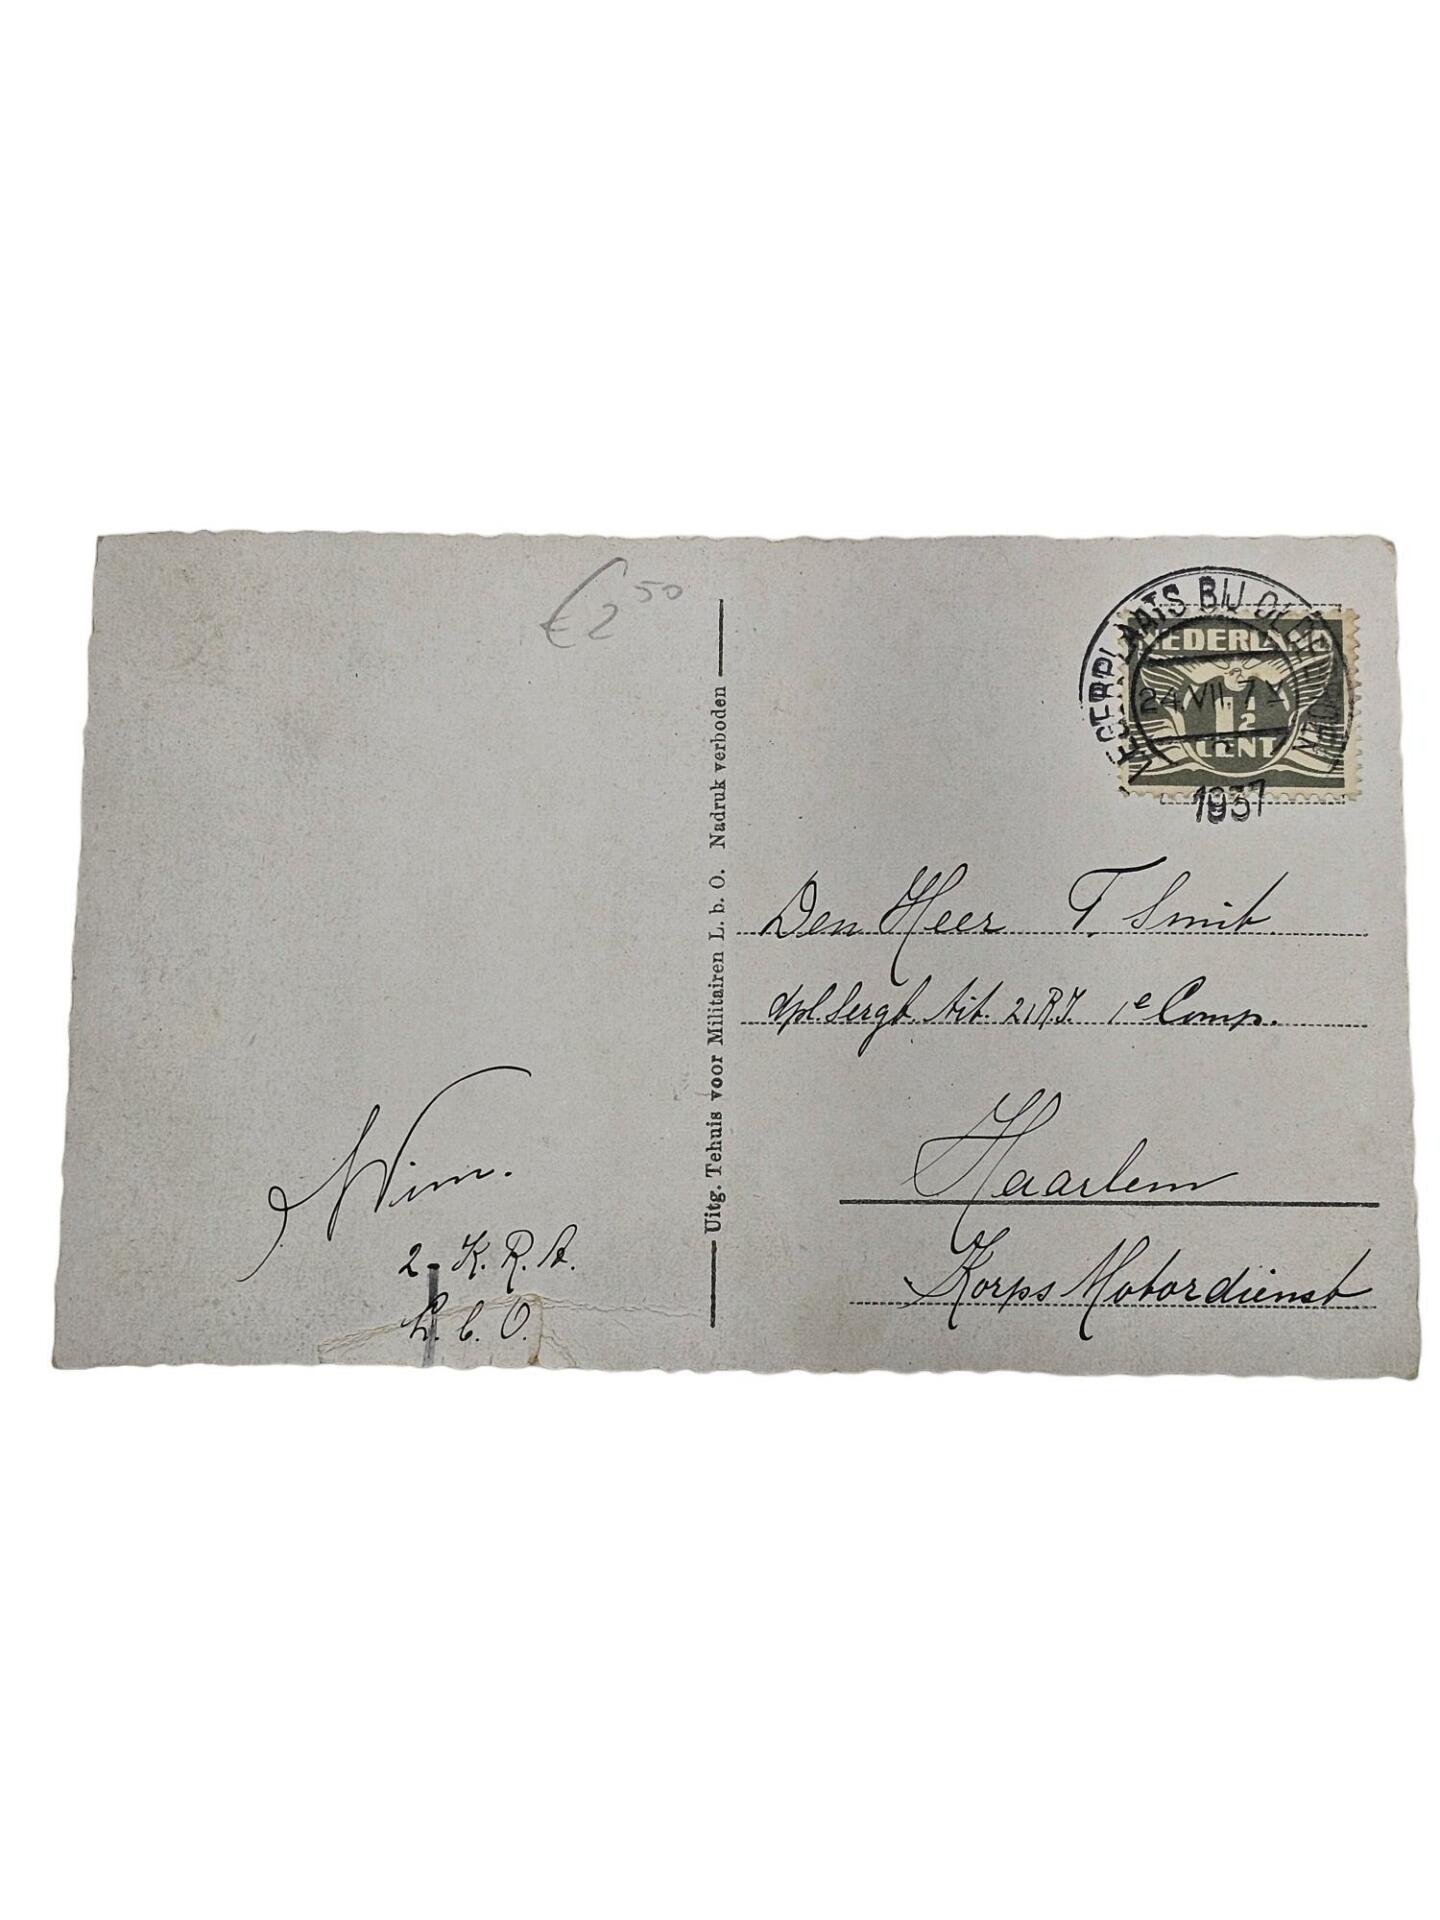 € 2 50
LEGERPLAATS BIJ OLDEBROEK
24.VII.7 V
1937
NEDERLAND
1½
CENT
Uitg. Tehuis voor Militairen L. b. O. Nadruk verboden
Den Heer T. Smit.
dpl. Sergt. Art. 21 R.I. 1e Comp.
Haarlem
Korps Motordienst
Wim.
2- K. R. A.
L. b. O.